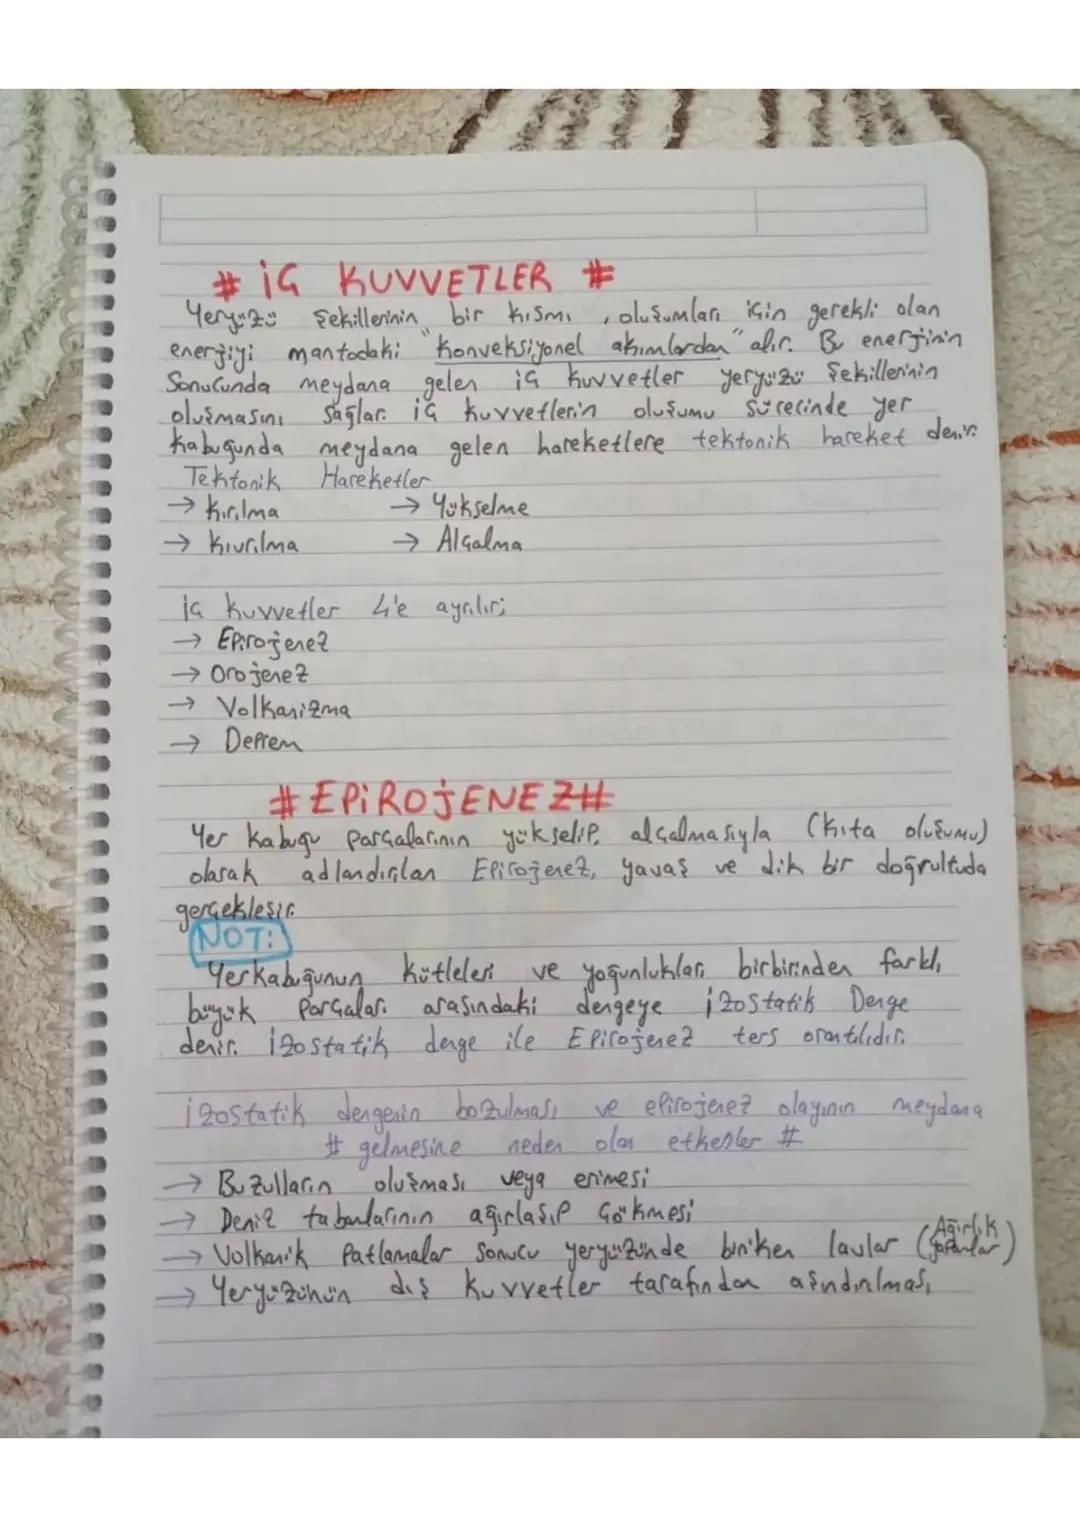 # İÇ KUVVETLER #
Yeryüzü şekillerinin bir kısmı, oluşumları için gerekli olan
enerjiyi mantodaki "Konveksiyonel akımlardan" alır. Bu enerjinin
Sonucunda meydana gelen iç kuvvetler yeryüzü şekillerinin
oluşmasını sağlar. iç kuvvetlerin oluşumu sürecinde yer
kabuğunda meydana gelen hareketlere tektonik hareket denir.
Tektonik Hareketler
→ Kırılma → Yükselme
→ Kıvrılma → Alçalma
iç kuvvetler 4'e ayrılır;
→ Epirojenez
→ Orojenez
→ Volkanizma
→ Deprem
# EPİROJENEZ #
Yer kabuğu parçalarının yükselip, alçalmasıyla (kıta oluşumu)
olarak adlandırılan Epirojenez, yavaş ve dik bir doğrultuda
gerçekleşir.
NOT:
Yerkabuğunun kütleleri ve yoğunlukları birbirinden farklı,
büyük parçaları arasındaki dengeye izostatik Denge
denir. izostatik denge ile Epirojenez ters orantılıdır.
izostatik dengenin bozulması ve epirojenez olayının meydana
# gelmesine neden olan etkenler #
→ Buzulların oluşması veya erimesi
→ Deniz tabanlarının ağırlaşıp çökmesi
→ Volkanik patlamalar sonucu yeryüzünde biriken lavlar (Ağırlık yaparlar)
→ Yeryüzünün dış kuvvetler tarafından aşındırılması